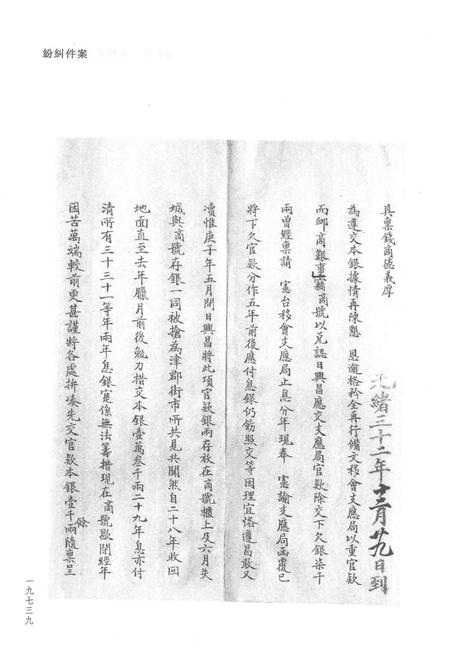 紛糾件案
光緒三十二年十二月廿九日到
具稟錢商德義厚
為遵交本銀據情再陳懇 恩逾格矜全再行備文移會支應局以重官欵
而卹商艱事竊商號以兌認日興昌應交支應局官欵除交下欠銀柒千
兩曾經稟請 憲台移會支應局止息分年現奉 憲諭支應局函覆已
將下欠官欵分作五年前後應付息銀仍飭照交等因理宜恪遵曷敢又
瀆惟庚子年五月間日興昌將此項官欵銀兩存放在商號櫃上及六月失
城與商號存銀一同被搶為津郡街市所共見共聞然自二十八年收回
地面直至去年臘月前後勉力措交本銀壹萬叁千兩二十九年息亦付
清所有三十三十一等年兩年息銀寔係無法籌措現在商號歇閉經年
困苦萬端較前更甚謹將各處拚湊先交官欵本銀壹千餘兩隨稟呈
一九七三九